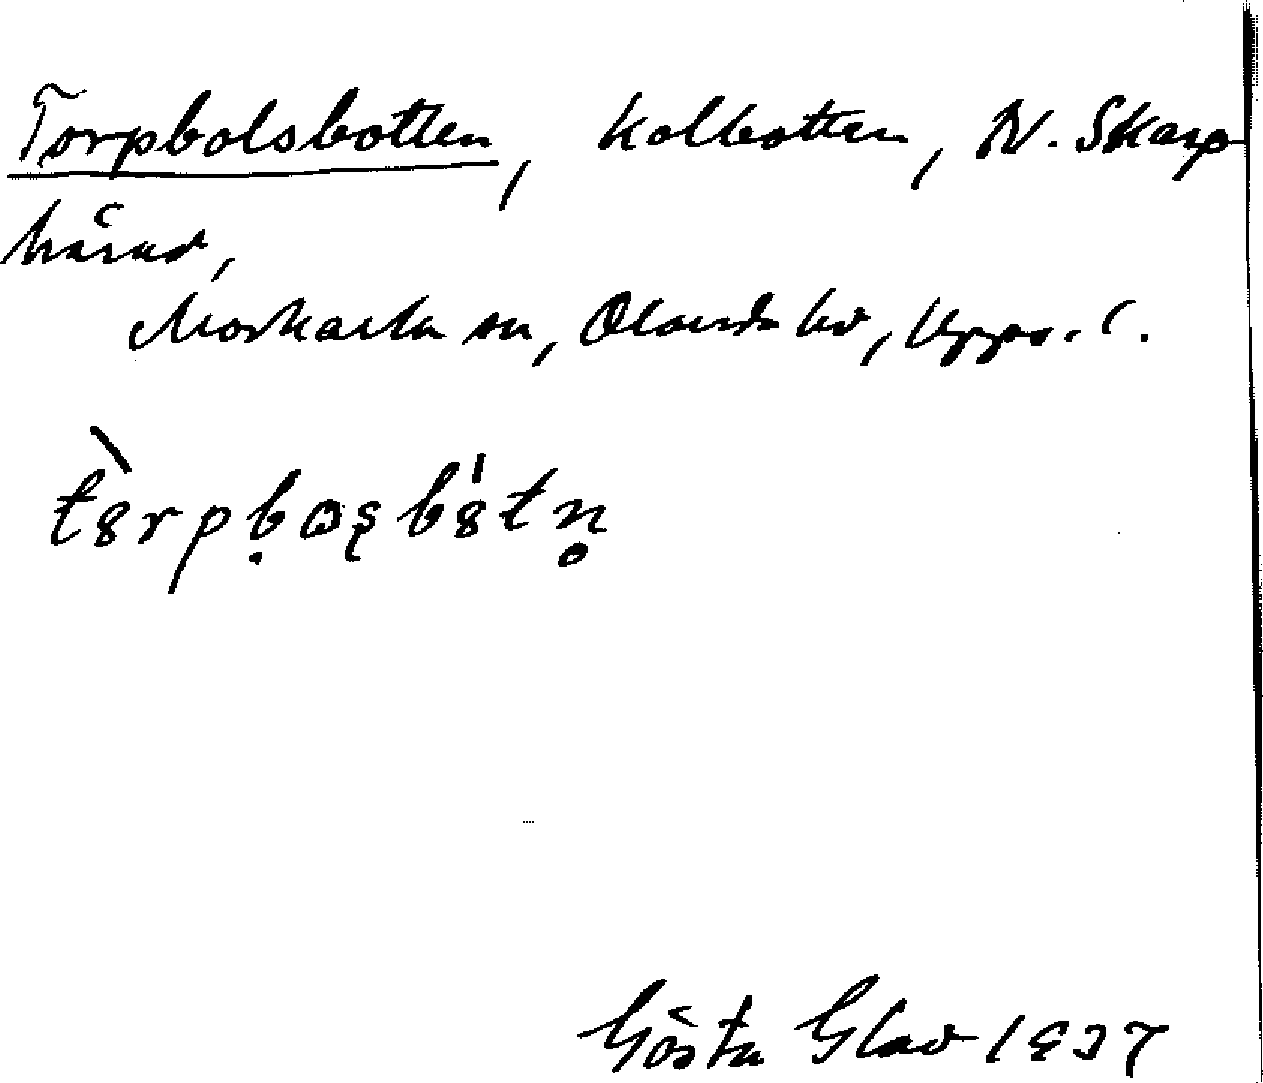 Torpbolsbotten, kolbotten, N. Skarp
hårad,
Morkarla sn, Olands hd, Upps. l.
Gösta Glad 1937